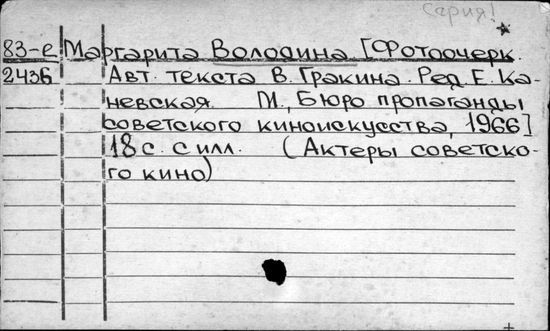 Серия!
83-е Маргарита Володина [Фотоочерк.
2436 Авт. текста В. Гракина. Ред. Е. Ка-
невская. М., Бюро пропаганды
советского киноискусства, 1966]
18 с. с илл. (Актеры советско-
го кино)